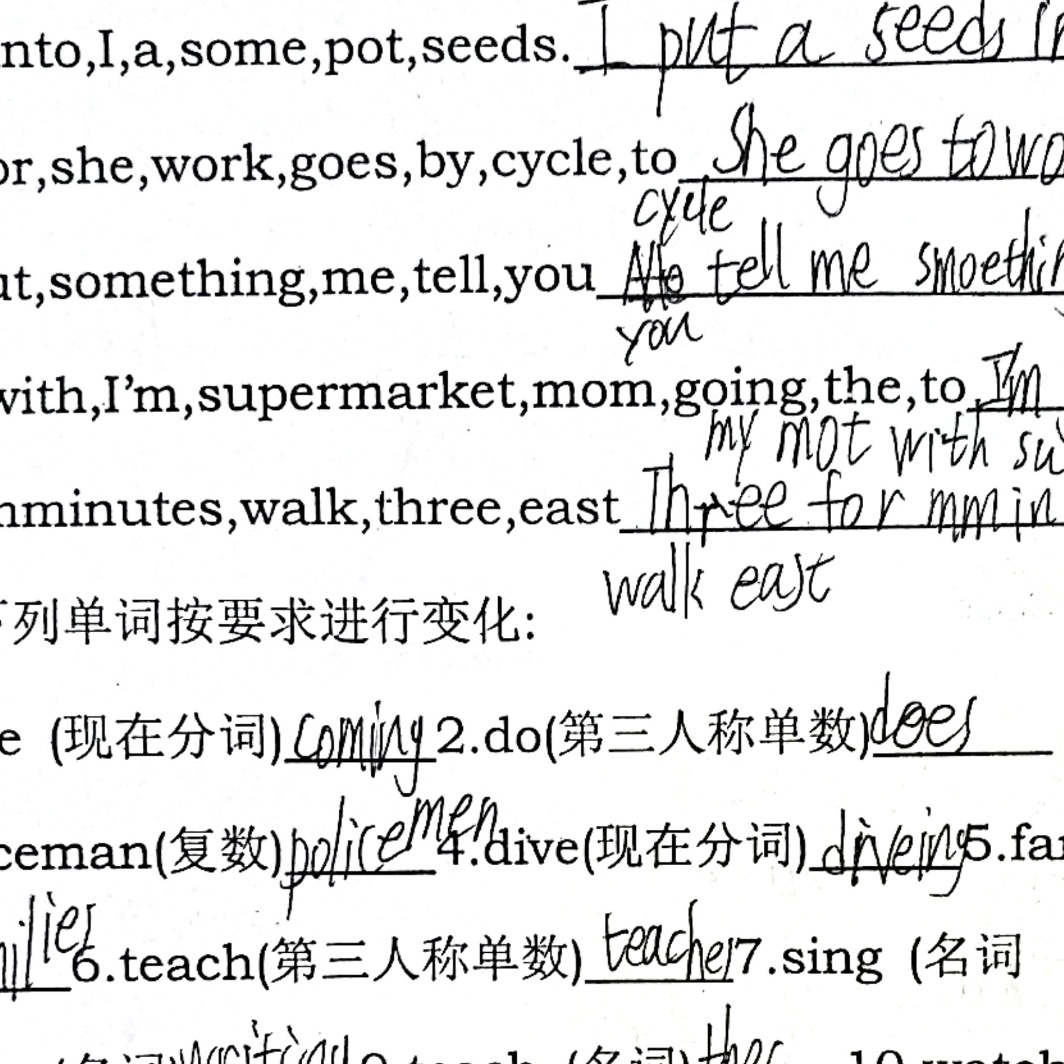 nto,I,a,some,pot,seeds. I put a seeds in
or,she,work,goes,by,cycle,to She goes to wo
cycle
ut,something,me,tell,you tell me smoethin
you
with,I'm,supermarket,mom,going,the,to I'm
my mot with su
nminutes,walk,three,east Three for mmin
walk east
下列单词按要求进行变化:
e (现在分词) coming 2.do(第三人称单数) does
ceman(复数) policemen 4.dive(现在分词) diveing 5.fa
milies 6.teach(第三人称单数) teacher 7.sing (名词